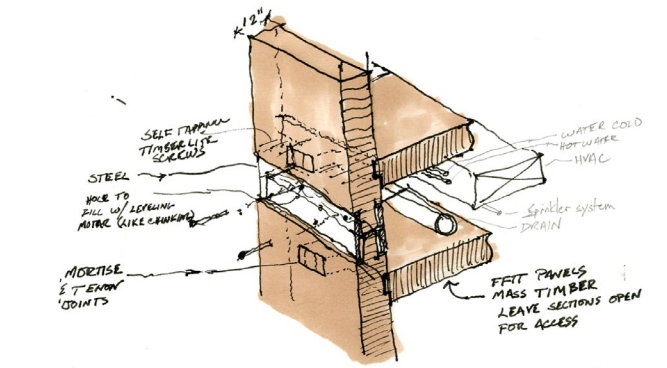 12"
SELF TAPPING
TIMBERLITE
SCREWS
STEEL
HOLE TO
FILL W/ LEVELING
MOTAR (LIKE CHINKING)
MORTISE
& TENON
JOINTS
WATER COLD
HOT WATER
HVAC
Sprinkler system
DRAIN
FFIT PANELS
MASS TIMBER
LEAVE SECTIONS OPEN
FOR ACCESS